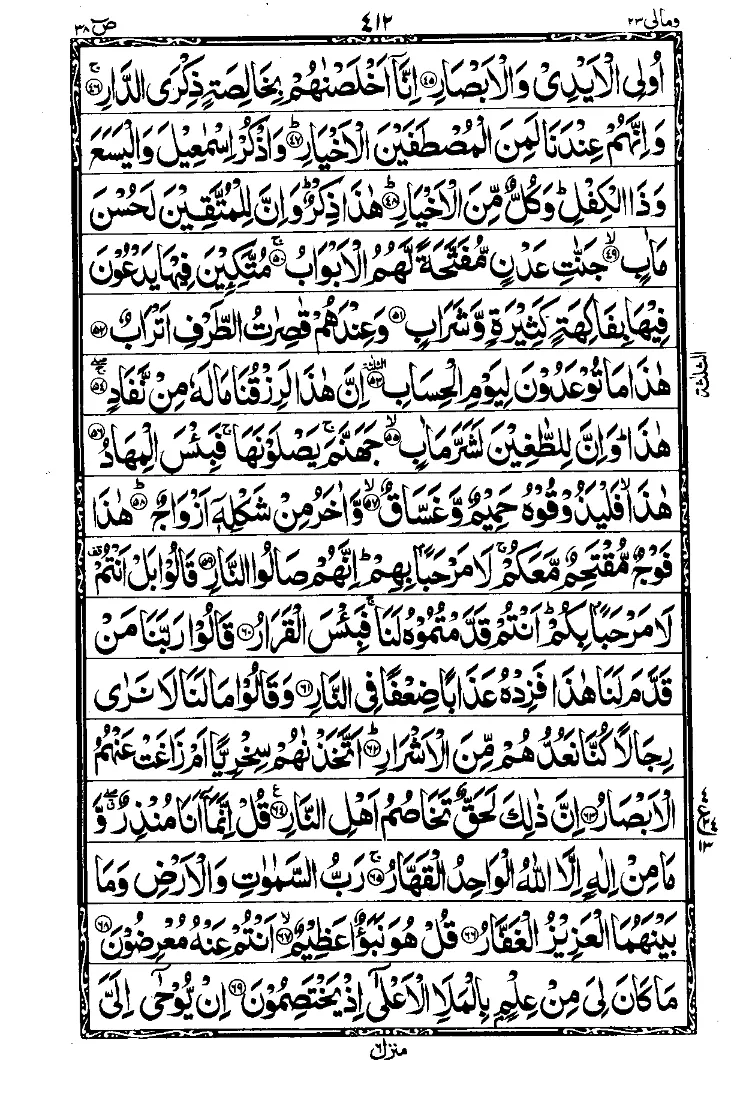 ومالی ۲۳ ۴۱۲ صٓ ۳۸
اُولِی الْاَیْدِیْ وَالْاَبْصَارِ ﴿۴۵﴾ اِنَّاۤ اَخْلَصْنٰهُمْ بِخَالِصَةٍ ذِكْرَی الدَّارِ ۚ﴿۴۶﴾
وَاِنَّهُمْ عِنْدَنَا لَمِنَ الْمُصْطَفَیْنَ الْاَخْیَارِ ؕ﴿۴۷﴾ وَاذْكُرْ اِسْمٰعِیْلَ وَالْیَسَعَ
وَذَا الْكِفْلِ ؕ وَكُلٌّ مِّنَ الْاَخْیَارِ ؕ﴿۴۸﴾ هٰذَا ذِكْرٌ ؕ وَاِنَّ لِلْمُتَّقِیْنَ لَحُسْنَ
مَاٰبٍ ۙ﴿۴۹﴾ جَنّٰتِ عَدْنٍ مُّفَتَّحَةً لَّهُمُ الْاَبْوَابُ ۚ﴿۵۰﴾ مُتَّكِـِٕیْنَ فِیْهَا یَدْعُوْنَ
فِیْهَا بِفَاكِهَةٍ كَثِیْرَةٍ وَّشَرَابٍ ﴿۵۱﴾ وَعِنْدَهُمْ قٰصِرٰتُ الطَّرْفِ اَتْرَابٌ ﴿۵۲﴾
هٰذَا مَا تُوْعَدُوْنَ لِیَوْمِ الْحِسَابِ ﴿۵۳﴾ اِنَّ هٰذَا لَرِزْقُنَا مَا لَهٗ مِنْ نَّفَادٍ ۚۖ﴿۵۴﴾
الثلثة
هٰذَا ؕ وَاِنَّ لِلطّٰغِیْنَ لَشَرَّ مَاٰبٍ ۙ﴿۵۵﴾ جَهَنَّمَ ۚ یَصْلَوْنَهَا ۚ فَبِئْسَ الْمِهَادُ ﴿۵۶﴾
هٰذَا ۙ فَلْیَذُوْقُوْهُ حَمِیْمٌ وَّغَسَّاقٌ ۙ﴿۵۷﴾ وَّاٰخَرُ مِنْ شَكْلِهٖۤ اَزْوَاجٌ ؕ﴿۵۸﴾ هٰذَا
فَوْجٌ مُّقْتَحِمٌ مَّعَكُمْ ۚ لَا مَرْحَبًۢا بِهِمْ ؕ اِنَّهُمْ صَالُوا النَّارِ ﴿۵۹﴾ قَالُوْا بَلْ اَنْتُمْ
لَا مَرْحَبًۢا بِكُمْ ؕ اَنْتُمْ قَدَّمْتُمُوْهُ لَنَا ۚ فَبِئْسَ الْقَرَارُ ﴿۶۰﴾ قَالُوْا رَبَّنَا مَنْ
قَدَّمَ لَنَا هٰذَا فَزِدْهُ عَذَابًا ضِعْفًا فِی النَّارِ ﴿۶۱﴾ وَقَالُوْا مَا لَنَا لَا نَرٰی
رِجَالًا كُنَّا نَعُدُّهُمْ مِّنَ الْاَشْرَارِ ؕ﴿۶۲﴾ اَتَّخَذْنٰهُمْ سِخْرِیًّا اَمْ زَاغَتْ عَنْهُمُ
الْاَبْصَارُ ﴿۶۳﴾ اِنَّ ذٰلِكَ لَحَقٌّ تَخَاصُمُ اَهْلِ النَّارِ ﴿۶۴﴾ قُلْ اِنَّمَاۤ اَنَا مُنْذِرٌ ۖۗ وَّ
مَا مِنْ اِلٰهٍ اِلَّا اللّٰهُ الْوَاحِدُ الْقَهَّارُ ۚ﴿۶۵﴾ رَبُّ السَّمٰوٰتِ وَالْاَرْضِ وَمَا
بَیْنَهُمَا الْعَزِیْزُ الْغَفَّارُ ﴿۶۶﴾ قُلْ هُوَ نَبَؤٌا عَظِیْمٌ ۙ﴿۶۷﴾ اَنْتُمْ عَنْهُ مُعْرِضُوْنَ ﴿۶۸﴾
مَا كَانَ لِیَ مِنْ عِلْمٍۭ بِالْمَلَاِ الْاَعْلٰۤی اِذْ یَخْتَصِمُوْنَ ﴿۶۹﴾ اِنْ یُّوْحٰۤی اِلَیَّ
منزل ۶